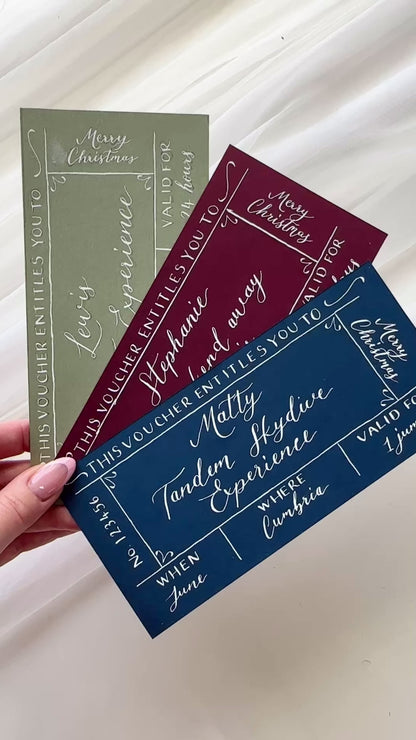 Merry
Christmas
THIS VOUCHER ENTITLES YOU TO
Lewis
Experience
VALID FOR
24 hours
Merry
Christmas
THIS VOUCHER ENTITLES YOU TO
Stephanie
away
VALID FOR
Merry
Christmas
THIS VOUCHER ENTITLES YOU TO
Matty
Tandem Skydive
Experience
No 123456
WHEN
June
WHERE
Cumbria
VALID FO
1 jum